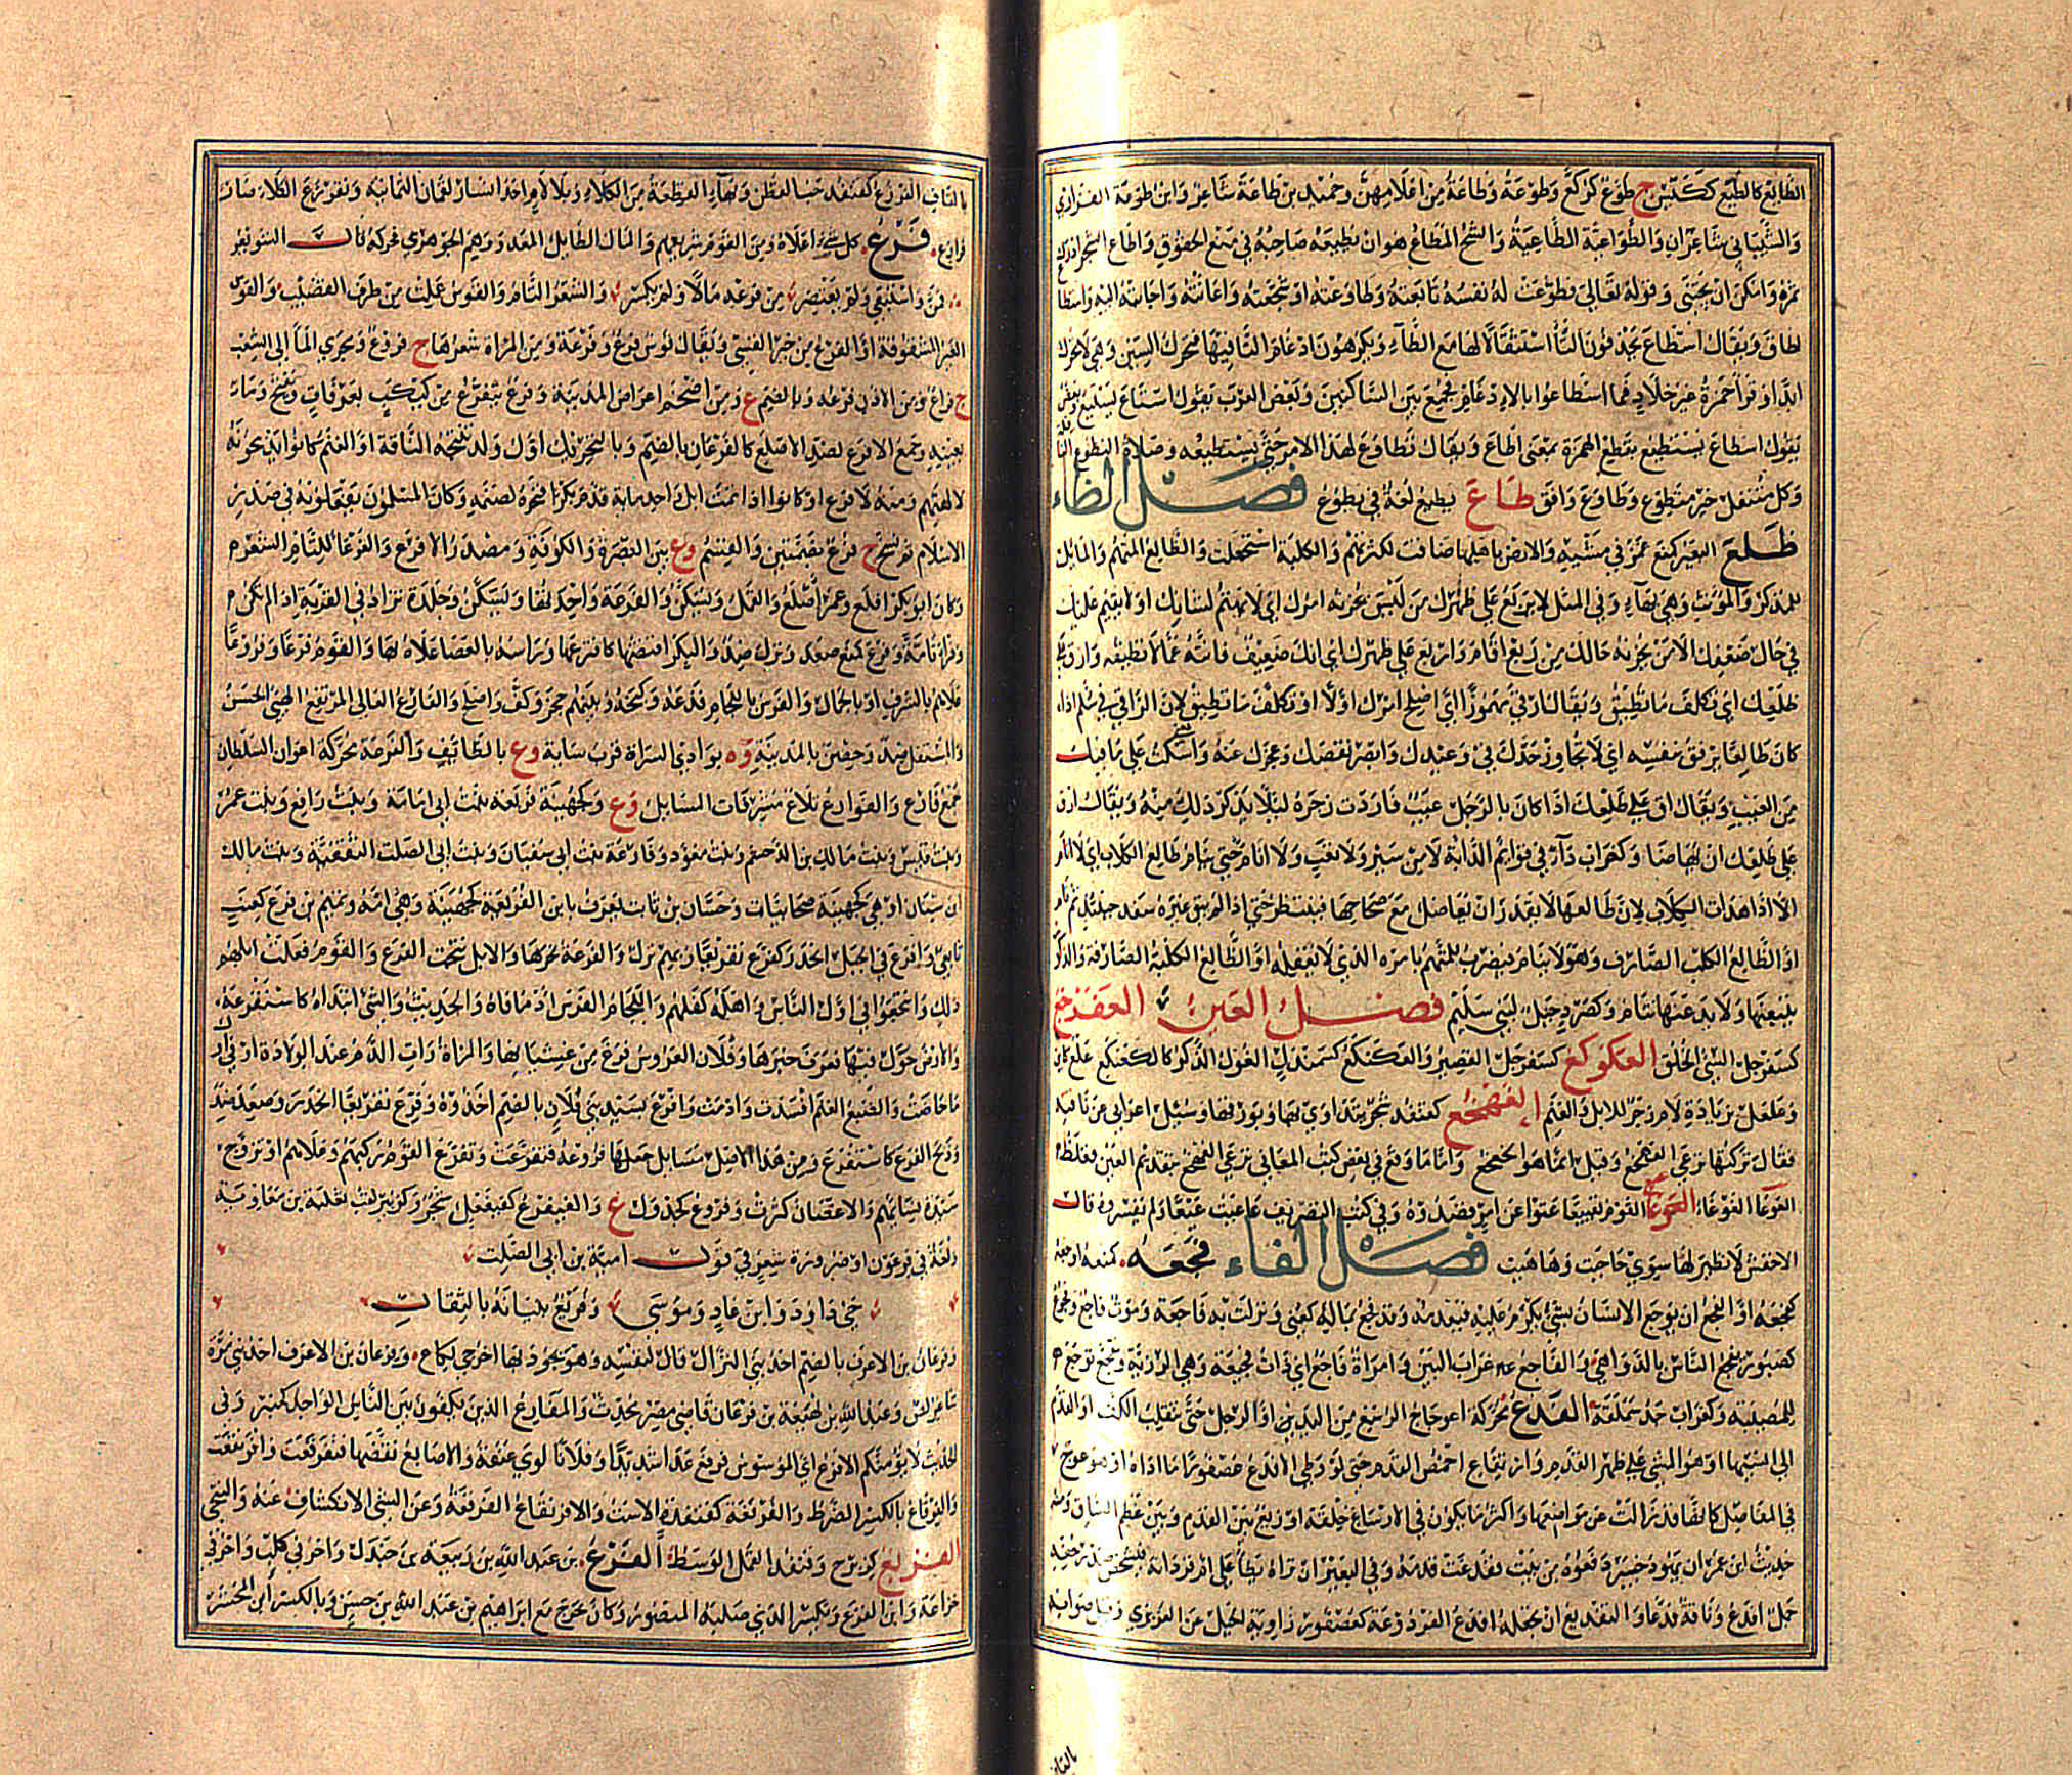 الطائع كالطيع ككيس ج طوع كركع وطوعة وطاعة من اعلامهن وحميد بن طاعة شاعر وابن طوعة الفزاري
والشيباني شاعران والطواعية الطاعية والشح المطاع هو ان يطيعه صاحبه في منع الحقوق واطاع الشجر ادرك
ثمره وامكن ان يجتنى وقوله تعالى فطوعت له نفسه تابعته وطاوعته او شجعته واعانته واجابته اليه واستطاع
اطاق ويقال اسطاع بحذفون التاء استثقالا لها مع الطاء ويكرهون ادغام التاء فيها فتحرك السين وهي لا تحرك
ابدا وقرأ حمزة غير خلاد فما اسطاعوا بالادغام فجمع بين الساكنين وبعض العرب يقول استاع يستيع وبعض
يقول اسطاع يسطيع بقطع الهمزة بمعنى اطاع ويقال تطاوع لهذا الامر حتى يستطيعه وصلاة التطوع النافلة
وكل متنفل خير متطوع وطاوع وافق طاع يطيع لغة في يطوع فصل الظاء
ظلع البعير كمنع غمز في مشيه والارض باهلها ضاقت لكثرتهم والكلبة استحعلت والظالع المتهم والمائل
للمذكر والمؤنث وهي بهاء وفي المثل لا يربع على ظلعك من ليس يحزنه امرك اي لا يهتم لشانك او لا يقيم عليك
في حال ضعفك الا من يحزنه حالك من ربع اقام واربع على ظهرك اي انك ضعيف فانته عما لا تطيقه وارق على
ظلعك اي تكلف ما تطيق ويقال ارقئ مهموزا اي اصلح امرك اولا او تكلف ما تطيق لان الراقي في سلم اذا
كان ظالعا يرفق بنفسه اي لا تجاوز حدك في وعيدك وابصر نقصك وعجزك عنه واسكت على ما فيك
من العيب ويقال ق على ظلعك اذا كان بالرجل عيب فاردت زجره لئلا يذكر ذلك منه ويقال ارق
على ظلعك ان يهاضا وكغراب داء في قوائم الدابة لا من سير ولا تعب ولا انام حتى ينام ظالع الكلاب اي لا انام
الا اذا هدات الكلاب لان ظالعها لا يقدر ان يعاضل مع صحاحها فينتظر حتى اذا لم يبق غيره سفد حينئذ ثم نام
او الظالع الكلب الصارف وهو لا ينام فيضرب للمهتم بامره الذي لا يغفله او الظالع الكلبة الصارفة والذكر
يتبعها ولا يدعها تنام وكصرد جبل لبني سليم فصل العين العفرجع
كسفرجل السيئ الخلق العكوكع كسفرجل القصير والعكنكع كسمندل الغول الذكر كالكعنكع علع كاين
وعلعل بزيادة لام زجر للابل والغنم العهخع كقنفذ شجر يتداوى بها وبورقها وسئل اعرابي عن ناقته
فقال تركتها ترعى العهخع وقيل انما هو الخعخع واما ما وقع في بعض كتب المعاني ترعى الهعخع بتقديم العين فغلط
العوعا الغوغاء العوعا القوم تعييعا عتوا عن امر قصدوه وفي كتب التصريف عاعيت عيعاء ولم يفسروه قال
الاخفش لا نظير لها سوى حاحيت وهاهيت فصل الفاء فجعه كمنعه اوجعه
كفجعه او الفجع ان يوجع الانسان بشيء يكرم عليه فيعدمه وقد فجع بماله كعني ونزلت به فاجعة وموت فاجع وفجوع
كصبور يفجع الناس بالدواهي والفاجع غراب البين وامراة فاجع اي ذات فجيعة وهي الرزية وتفجع توجع
للمصيبة وكغراب جد شملقة الفدع محركة اعوجاج الرسغ من اليد او الرجل حتى ينقلب الكف او القدم
الى انسيها او هو المشي على ظهر القدم او ارتفاع اخمص القدم حتى لو وطئ الافدع عصفورا ما اذاه او هو عوج
في المفاصل كانها قد زالت عن مواضعها واكثر ما يكون في الارساغ خلقة او زيغ بين القدم وبين عظم الساق ومنه
حديث ابن عمر ان يهود خيبر دفعوه من بيت ففدعت قدمه وفي البعير ان تراه يطأ على ام قردانه فيشخص صدر خفه
جمل افدع وناقة فدعاء والتفديع ان تجعله افدع الفردعة كعصفور زاوية الجبل عن العزيزي وقيل صوابه
بالقاف
بالقاف الفرزع كقنفذ حب القطن وبهاء القطعة من الكلاء وبلا لام احد انسار لقمان الثمانية وتفرزع الكلاء صار
فرازع فرع كل شيء اعلاه ومن القوم شريفهم والمال الطائل المعد ووهم الجوهري فحركه قال الشويعر
فمن واستبقي ولم يعتصر من فرعه مالا ولم يكسر والشعر التام والقوس عملت من طرف القضيب والقوس
الغير المشقوقة او الفرع من خير القسي ويقال قوس فرع وفرعة ومن المراة شعرها ج فروع ومجرى الماء الى الشعب
ج فراع ومن الاذن فرعه وبالضم ع ومن اضخم اعراض المدينة وفرع يتفرع من كبكب بعرفات ويفتح وماء
بعينه وجمع الافرع لضد الاصلع كالفرعان بالضم وبالتحريك اول ولد تنتجه الناقة او الغنم كانوا يذبحونه
لالهتهم ومنه لا فرع او كانوا اذا تمت ابل احد مائة قدم بكرا فنحره لصنمه وكان المسلمون يفعلونه في صدر
الاسلام ثم نسخ ج فرع بضمتين والقسم وع بين البصرة والكوفة ومصدر الافرع والفرعاء للتام الشعر
وكان ابو بكر افرع وعمر اصلع والقمل ويسكن والفرعة واحدتها ويسكن وجلدة تزاد في القربة اذا لم تكن
وفراء تامة وفرع كمنع صعد ونزل ضد والبكر افتضها كافترعها وراسه بالعصا علاه بها والقوم فرعا وفروعا
علاهم بالشرف او بالجمال والفرس باللجام قدعه وكبحه وبينهم حجز وكف واصلح والفارع العالي المرتفع الهيئ الحسن
والمستفل ضد وحصن بالمدينة وة بوادي السراة قرب ساية وع بالطائف والفرعة محركة اعوان السلطان
جمع فارع والفوارع تلاع مشرفات المسايل وع وكجهينة فريعة بنت ابي امامة وبنت رافع وبنت عمر
وبنت قيس وبنت مالك بن الدخشم وبنت معوذ وفارعة بنت ابي سفيان وبنت ابي الصلت الثقفية وبنت مالك
ابن سنان او هي كجهينة صحابيات وحسان بن ثابت يعرف بابن الفريعة كجهينة وهي امه وتميم بن فرع كعنب
تابعي وافرع في الجبل انحدر كفرع تفريعا وبهم نزل والفرعة نحرها والابل نتجت الفرع والقوم فعلت ابلهم
ذلك وانتجعوا في اول الناس واهله كفلهم واللجام الفرس ادمى فاه والحديث والشيء ابتداه كاستفرعه
والارض جول فيها فعرف خبرها وفلان العروس فرغ من غشيانها والمراة رات الدم عند الولادة او في اول
ما حاضت والضبع الغنم افسدت وادمت وافرع بسيد بني فلان بالضم اخذوه وفرع تفريعا انحدر وصعد ضد
وذبح الفرع كاستفرع ومن هذا الاصل مسائل جعلها فروعه فتفرعت وتفرع القوم ركبهم وعلاهم او تزوج
سيدة نسائهم والاغصان كثرت وفروع كجدول ع والفيفرع كفيفعل شجر وكزبير لقب ثعلبة بن معاوية
ولغة في فرعون او ضرورة شعر في قول امية بن ابي الصلت
حي داود وابن عاد وموسى وفريع بنيانه بالثقال
وفرعان بن الاعرف بالضم احد بني النزال قال لنفسه وهو يجود بها اخرجي لكاع وفرعان بن الاعرف احد بني مرة
شاعر لص وعبد الله بن لهيعة بن فرعان قاضي مصر محدث والمفارع الذين يكفون بين الناس الواحد كمنبر وفي
الحديث لا يؤمنكم الافرع اي الموسوس فرقع عدا شديدا وفلانا لوى عنقه والاصابع نقضها فتفرقعت وافرنقعت
والفرقاع بالكسر الضرط والفرقعة كقنفذة الاست والافرنقاع الفرقعة وعن الشيء الانكشاف عنه والتنحي
الفزيع كزبرج وقنفذ القمل الوسط الفزع بن عبد الله بن ربيعة بن جندل واخر في كلب واخر في
خزاعة وابن الفزع ويكسر الذي صلبه المنصور وكان خرج مع ابراهيم بن عبد الله بن حسين وبالكسر ابن المجشر